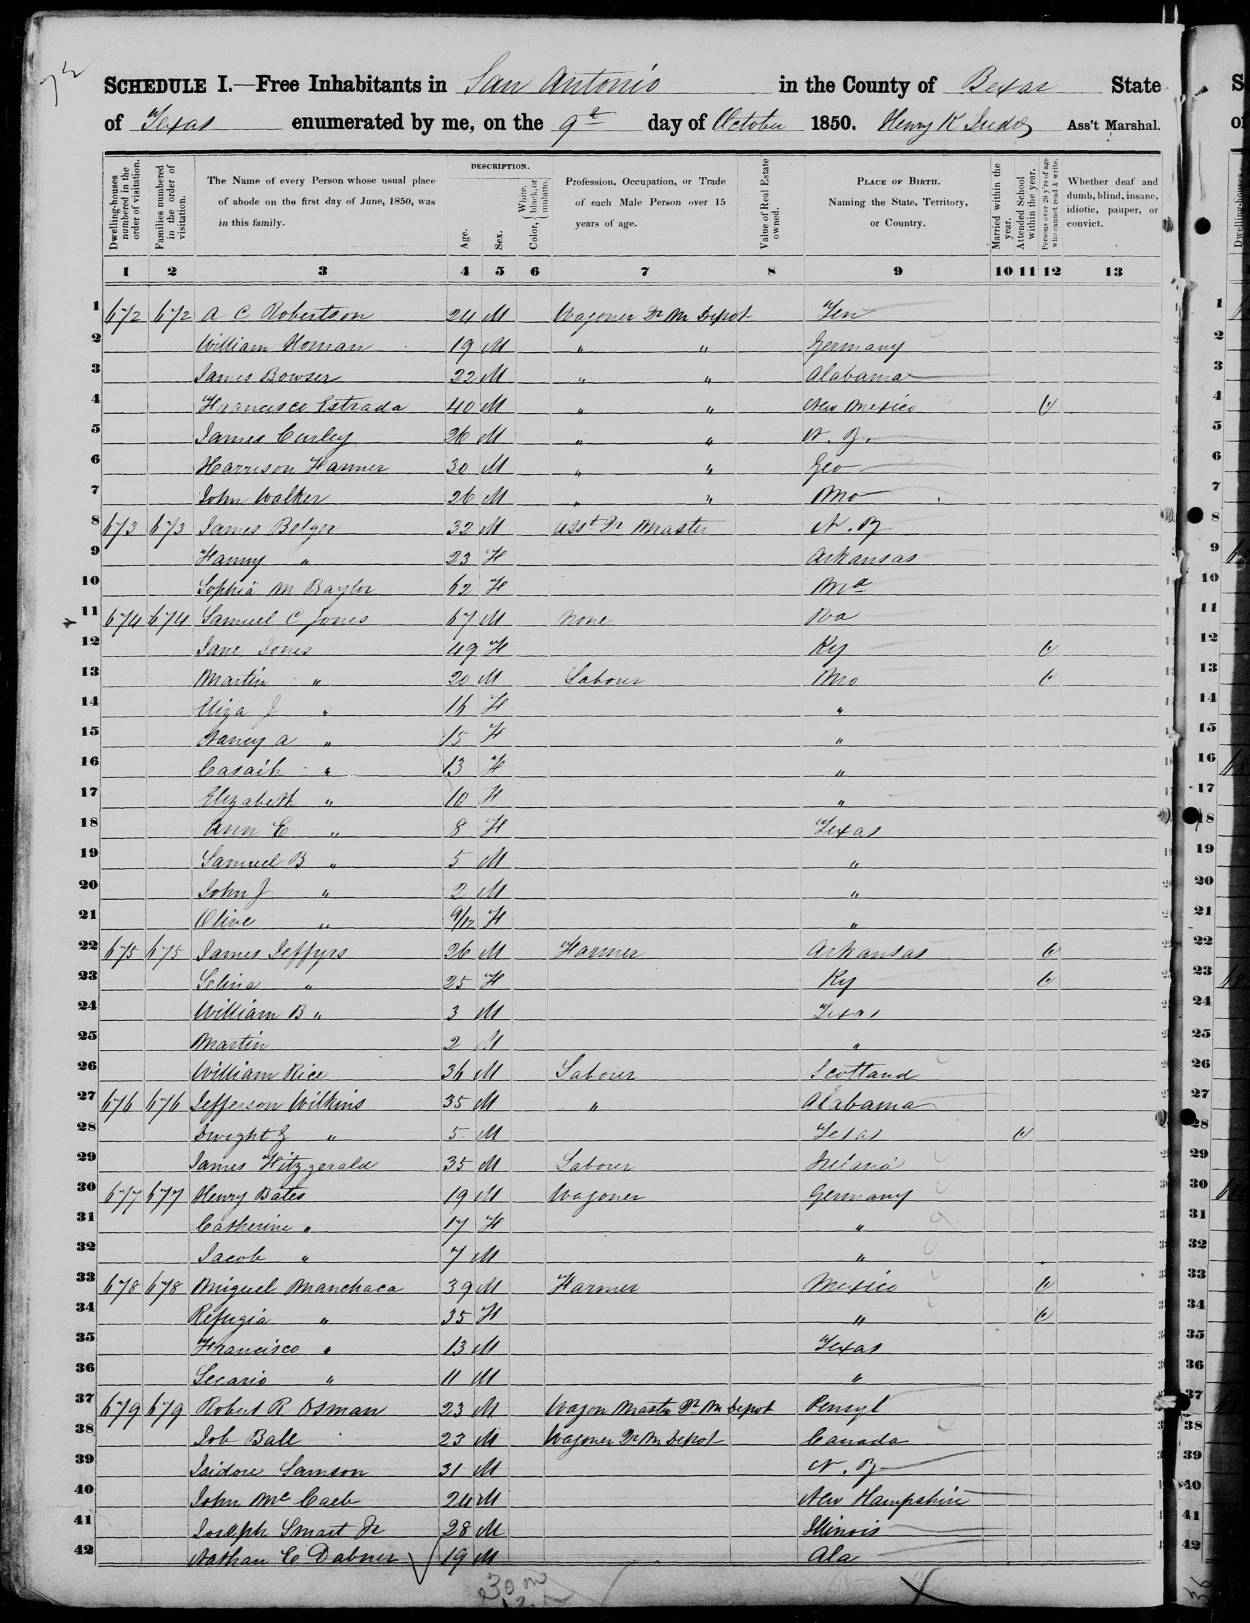 72
SCHEDULE I.—Free Inhabitants in San Antonio in the County of Bexar State
of Texas enumerated by me, on the 9th day of October 1850. Henry K Ass't Marshal.
Dwelling-houses numbered in the order of visitation.
Families numbered in the order of visitation.
The Name of every Person whose usual place of abode on the first day of June, 1850, was in this family.
DESCRIPTION.
Age.
Sex.
Color, { White, black, or mulatto.
Profession, Occupation, or Trade of each Male Person over 15 years of age.
Value of Real Estate owned.
PLACE OF BIRTH. Naming the State, Territory, or Country.
Married within the year.
Attended School within the year.
Persons over 20 y'rs of age who cannot read & write.
Whether deaf and dumb, blind, insane, idiotic, pauper, or convict.
1 2 3 4 5 6 7 8 9 10 11 12 13
1 672 672 A C Robertson 24 M Wagoner Qr Mr Depot Ten
2 William Homan 19 M " " Germany
3 James Bowser 22 M " " Alabama
4 Francisco Estrada 40 M " " New Mexico
5 James Curley 26 M " " N. Y.
6 Harrison Farmer 30 M " " Geo
7 John Walker 26 M " " Mo
8 673 673 James Belger 32 M Asst Qr Master N. Y
9 Fanny " 23 F Arkansas
10 Sophia M Baylor 62 F Md
11 674 674 Samuel C Jones 67 M None Va
12 Jane Jones 49 F Ky
13 Martin " 20 M Labourer Mo
14 Eliza J " 16 F "
15 Nancy A " 15 F "
16 Casaih " 13 F "
17 Elizabeth " 10 F "
18 Ann E " 8 F Texas
19 Samuel B " 5 M "
20 John J " 2 M "
21 Olive " 9/12 F "
22 675 675 James Jeffyrs 26 M Farmer Arkansas
23 Selina " 25 F Ky
24 William B " 3 M Texas
25 Martin 2 M "
26 William Rice 36 M Labourer Scotland
27 676 676 Jefferson Wilkins 35 M " Alabama
28 Dwight J " 5 M Texas
29 James Fitzgerald 35 M Labourer Ireland
30 677 677 Henry Bates 19 M Wagoner Germany
31 Catherine " 17 F "
32 Jacob " 7 M "
33 678 678 Miguel Manchaca 39 M Farmer Mexico
34 Refugia " 35 F "
35 Francisco " 13 M Texas
36 Secario " 11 M "
37 679 679 Robert R Osman 23 M Wagon Master Qr Mr Depot Pensyl
38 Job Ball 23 M Wagoner Qr Mr Depot Canada
39 Isidore Samson 31 M N. Y
40 John Mc Caeb 24 M New Hampshire
41 Joseph Smart Jr 28 M Illinois
42 Nathan C Dabner 19 M Ala
30 m